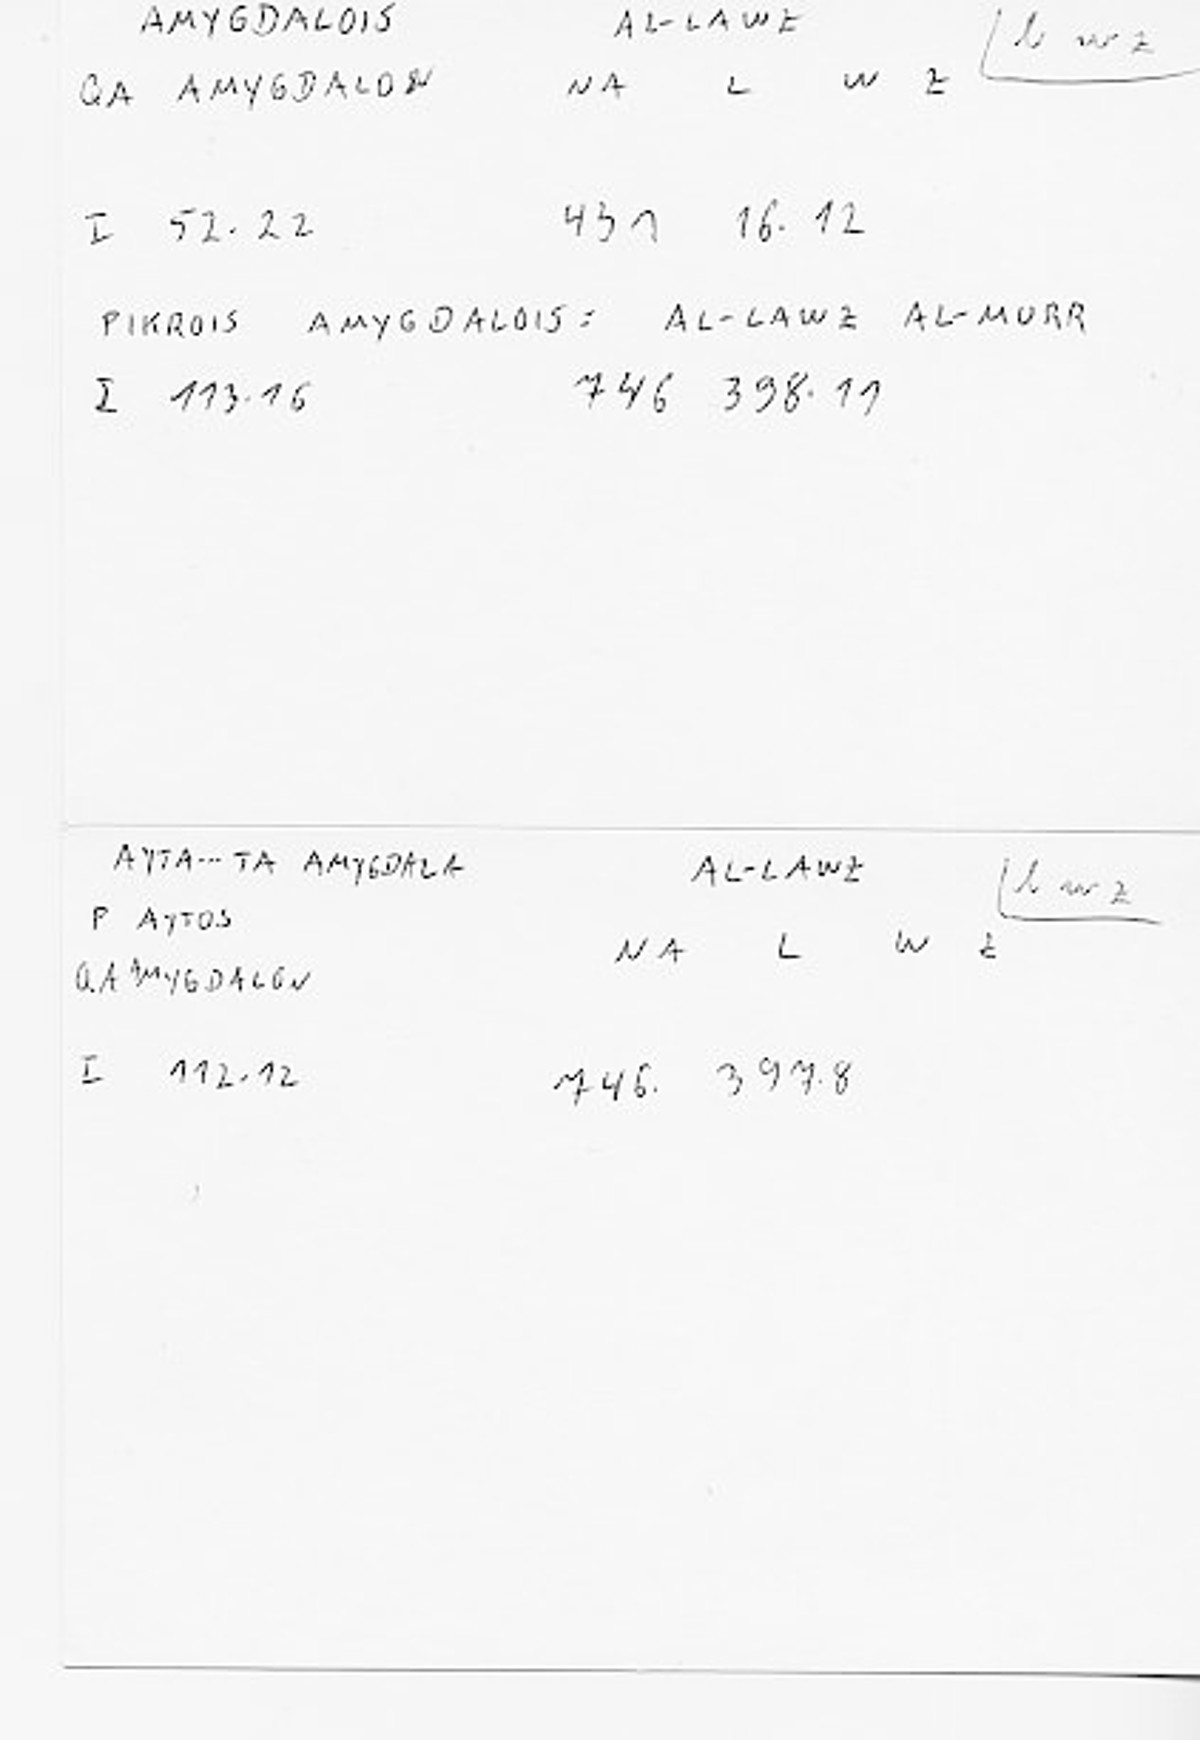 AMYGDALOIS AL-LAWZ lwz
QA AMYGDALON NA L W Z
I 52.22 431 16.12
PIKROIS AMYGDALOIS: AL-LAWZ AL-MURR
I 113.16 746 398.11
AYTA... TA AMYGDALA AL-LAWZ lwz
P AYTOS
NA L W Z
QA AMYGDALON
I 112.12 746. 397.8